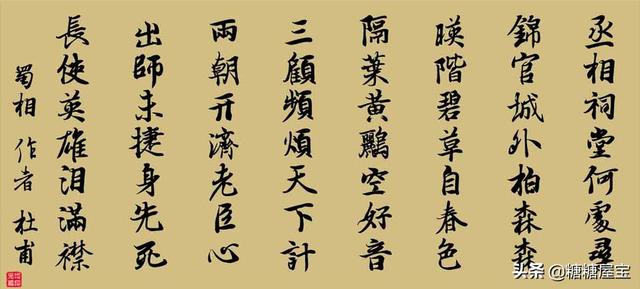 丞相祠堂何處尋
錦官城外柏森森
暎階碧草自春色
隔葉黃鸝空好音
三顧頻煩天下計
兩朝開濟老臣心
出師未捷身先死
長使英雄淚滿襟
蜀相 作者 杜甫
头条 @糖糖屋宝